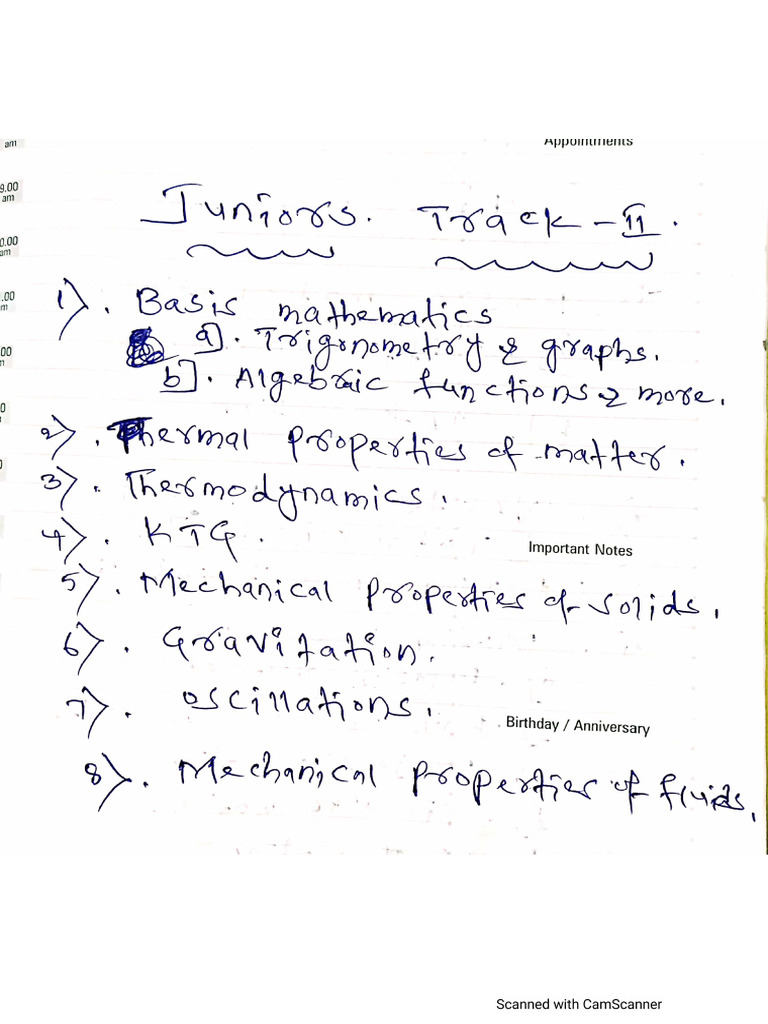 am
Appointments
9.00
am
Juniors. Track - II.
0.00
am
.00
m
1). Basis mathematics
a]. Trigonometry & graphs.
00
m
b]. Algebraic functions & more.
0
2). Thermal properties of matter.
3). Thermodynamics.
4). KTG.
Important Notes
5). Mechanical properties of solids.
6). Gravitation.
7). Oscillations.
Birthday / Anniversary
8). Mechanical properties of fluids.
Scanned with CamScanner